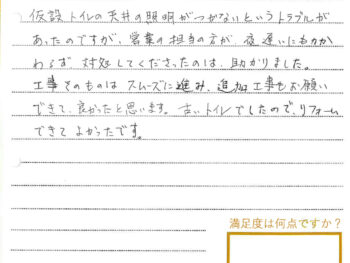 仮設トイレの天井の照明がつかないというトラブルが
あったのですが、営業の担当の方が夜遅いにもかか
わらず対処してくださったのは、助かりました。
工事そのものはスムーズに進み、追加工事もお願い
できて、良かったと思います。古いトイレでしたので、リフォーム
できてよかったです。
満足度は何点ですか？